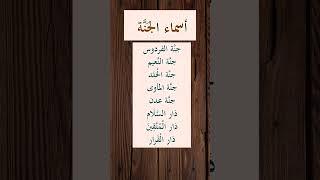 أسماء الجَنَّة
جنَّة الفردوس
جنَّة النَّعيم
جنَّة الخُلد
جنَّة المأوى
جنَّة عدن
دَار السَّلَام
دَار الْمُتَّقِينَ
دَار الْقَرار